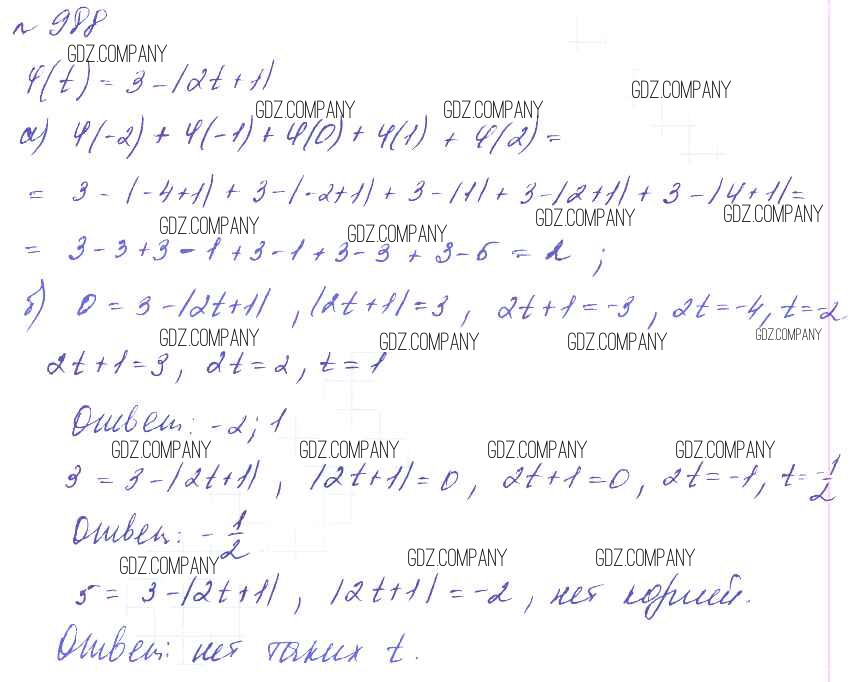 № 988
GDZ.COMPANY
φ(t) = 3 - |2t + 1|
GDZ.COMPANY
GDZ.COMPANY GDZ.COMPANY
а) φ(-2) + φ(-1) + φ(0) + φ(1) + φ(2) =
= 3 - |-4+1| + 3 - |-2+1| + 3 - |1| + 3 - |2+1| + 3 - |4+1| =
GDZ.COMPANY GDZ.COMPANY GDZ.COMPANY GDZ.COMPANY
= 3 - 3 + 3 - 1 + 3 - 1 + 3 - 3 + 3 - 5 = 2 ;
б) 0 = 3 - |2t+1| , |2t+1| = 3 , 2t+1 = -3 , 2t = -4, t = -2
GDZ.COMPANY GDZ.COMPANY GDZ.COMPANY GDZ.COMPANY
2t+1=3, 2t=2, t=1
Ответ: -2; 1
GDZ.COMPANY GDZ.COMPANY GDZ.COMPANY GDZ.COMPANY
3 = 3 - |2t+1| , |2t+1| = 0 , 2t+1=0, 2t=-1, t=-1/2
Ответ: - 1/2
GDZ.COMPANY GDZ.COMPANY GDZ.COMPANY
5 = 3 - |2t+1| , |2t+1| = -2 , нет корней.
Ответ: нет таких t.